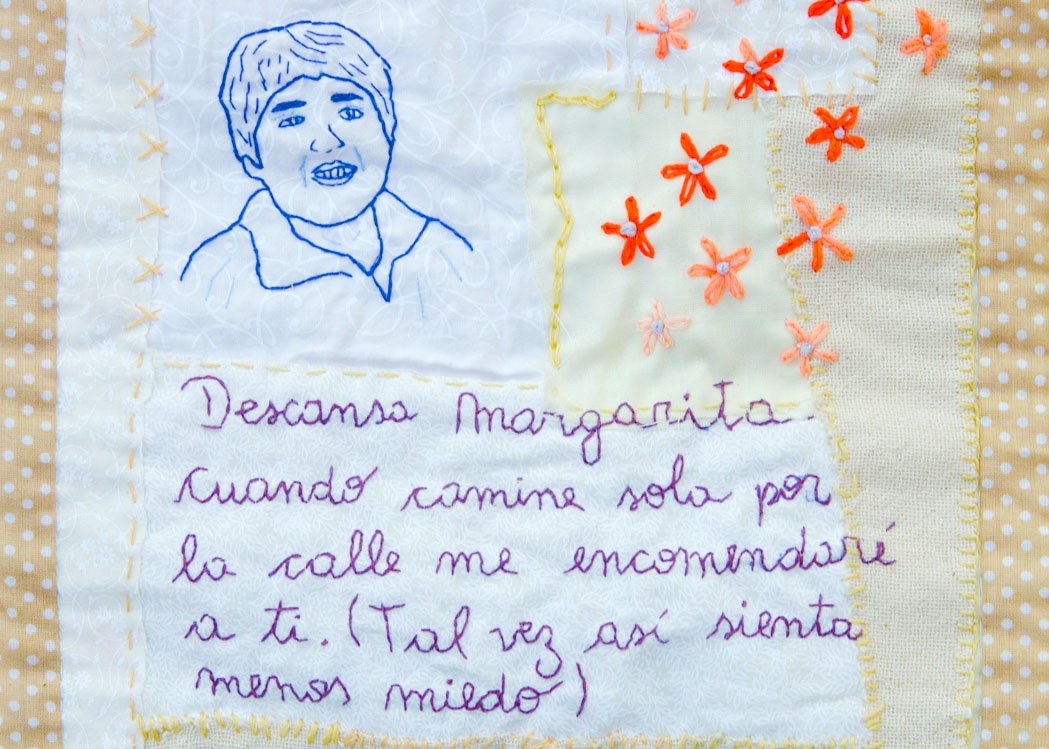 Descansa Margarita.
Cuando camine sola por
la calle me encomendaré
a ti. (Tal vez así sienta
menos miedo)